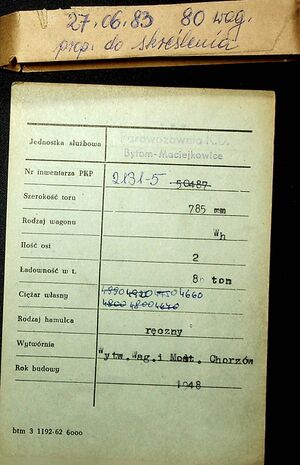 27.06.83 80 wag.
prop. do skreślenia
Jednostka służbowa Parowozownia K.D.
Bytom-Maciejkowice
Nr inwentarza PKP 2131-5 50487
Szerokość toru 785 mm
Rodzaj wagonu Wh
Ilość osi 2
Ładowność w t. 8 ton
Ciężar własny 4660
4800 4800 4670
Rodzaj hamulca ręczny
Wytwórnia Wytw.Wag.i Most. Chorzów
Rok budowy 1948
btm 3 1192-62 6000